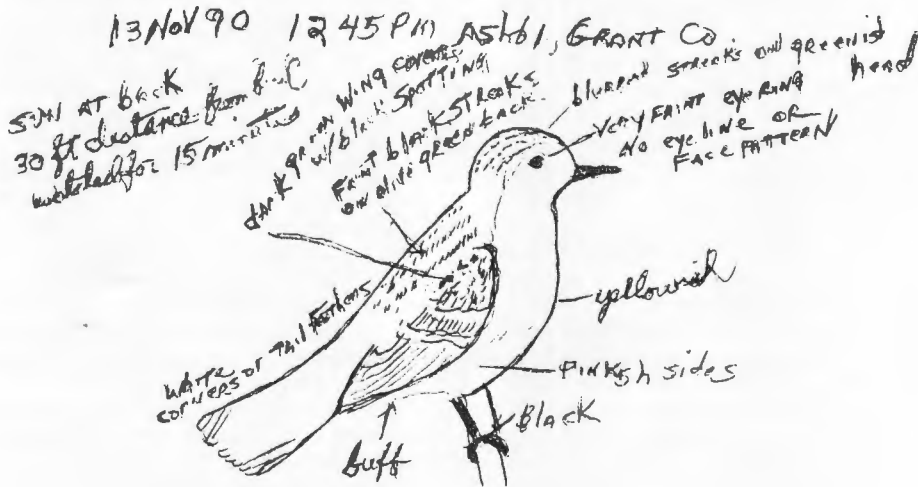 13 NOV 90 12 45 PM ASHBY, GRANT Co.
SUN AT back
30 ft distance from bird
watched for 15 minutes
dark green wing coverts
w/ black spotting
Faint black streaks
on olive green back
blurred streaks on greenish
head
VERY FAINT eye RING
NO eye line or
FACE PATTERN
yellowish
PINKish sides
Black
buff
WHITE
CORNERS OF TAIL FEATHERS